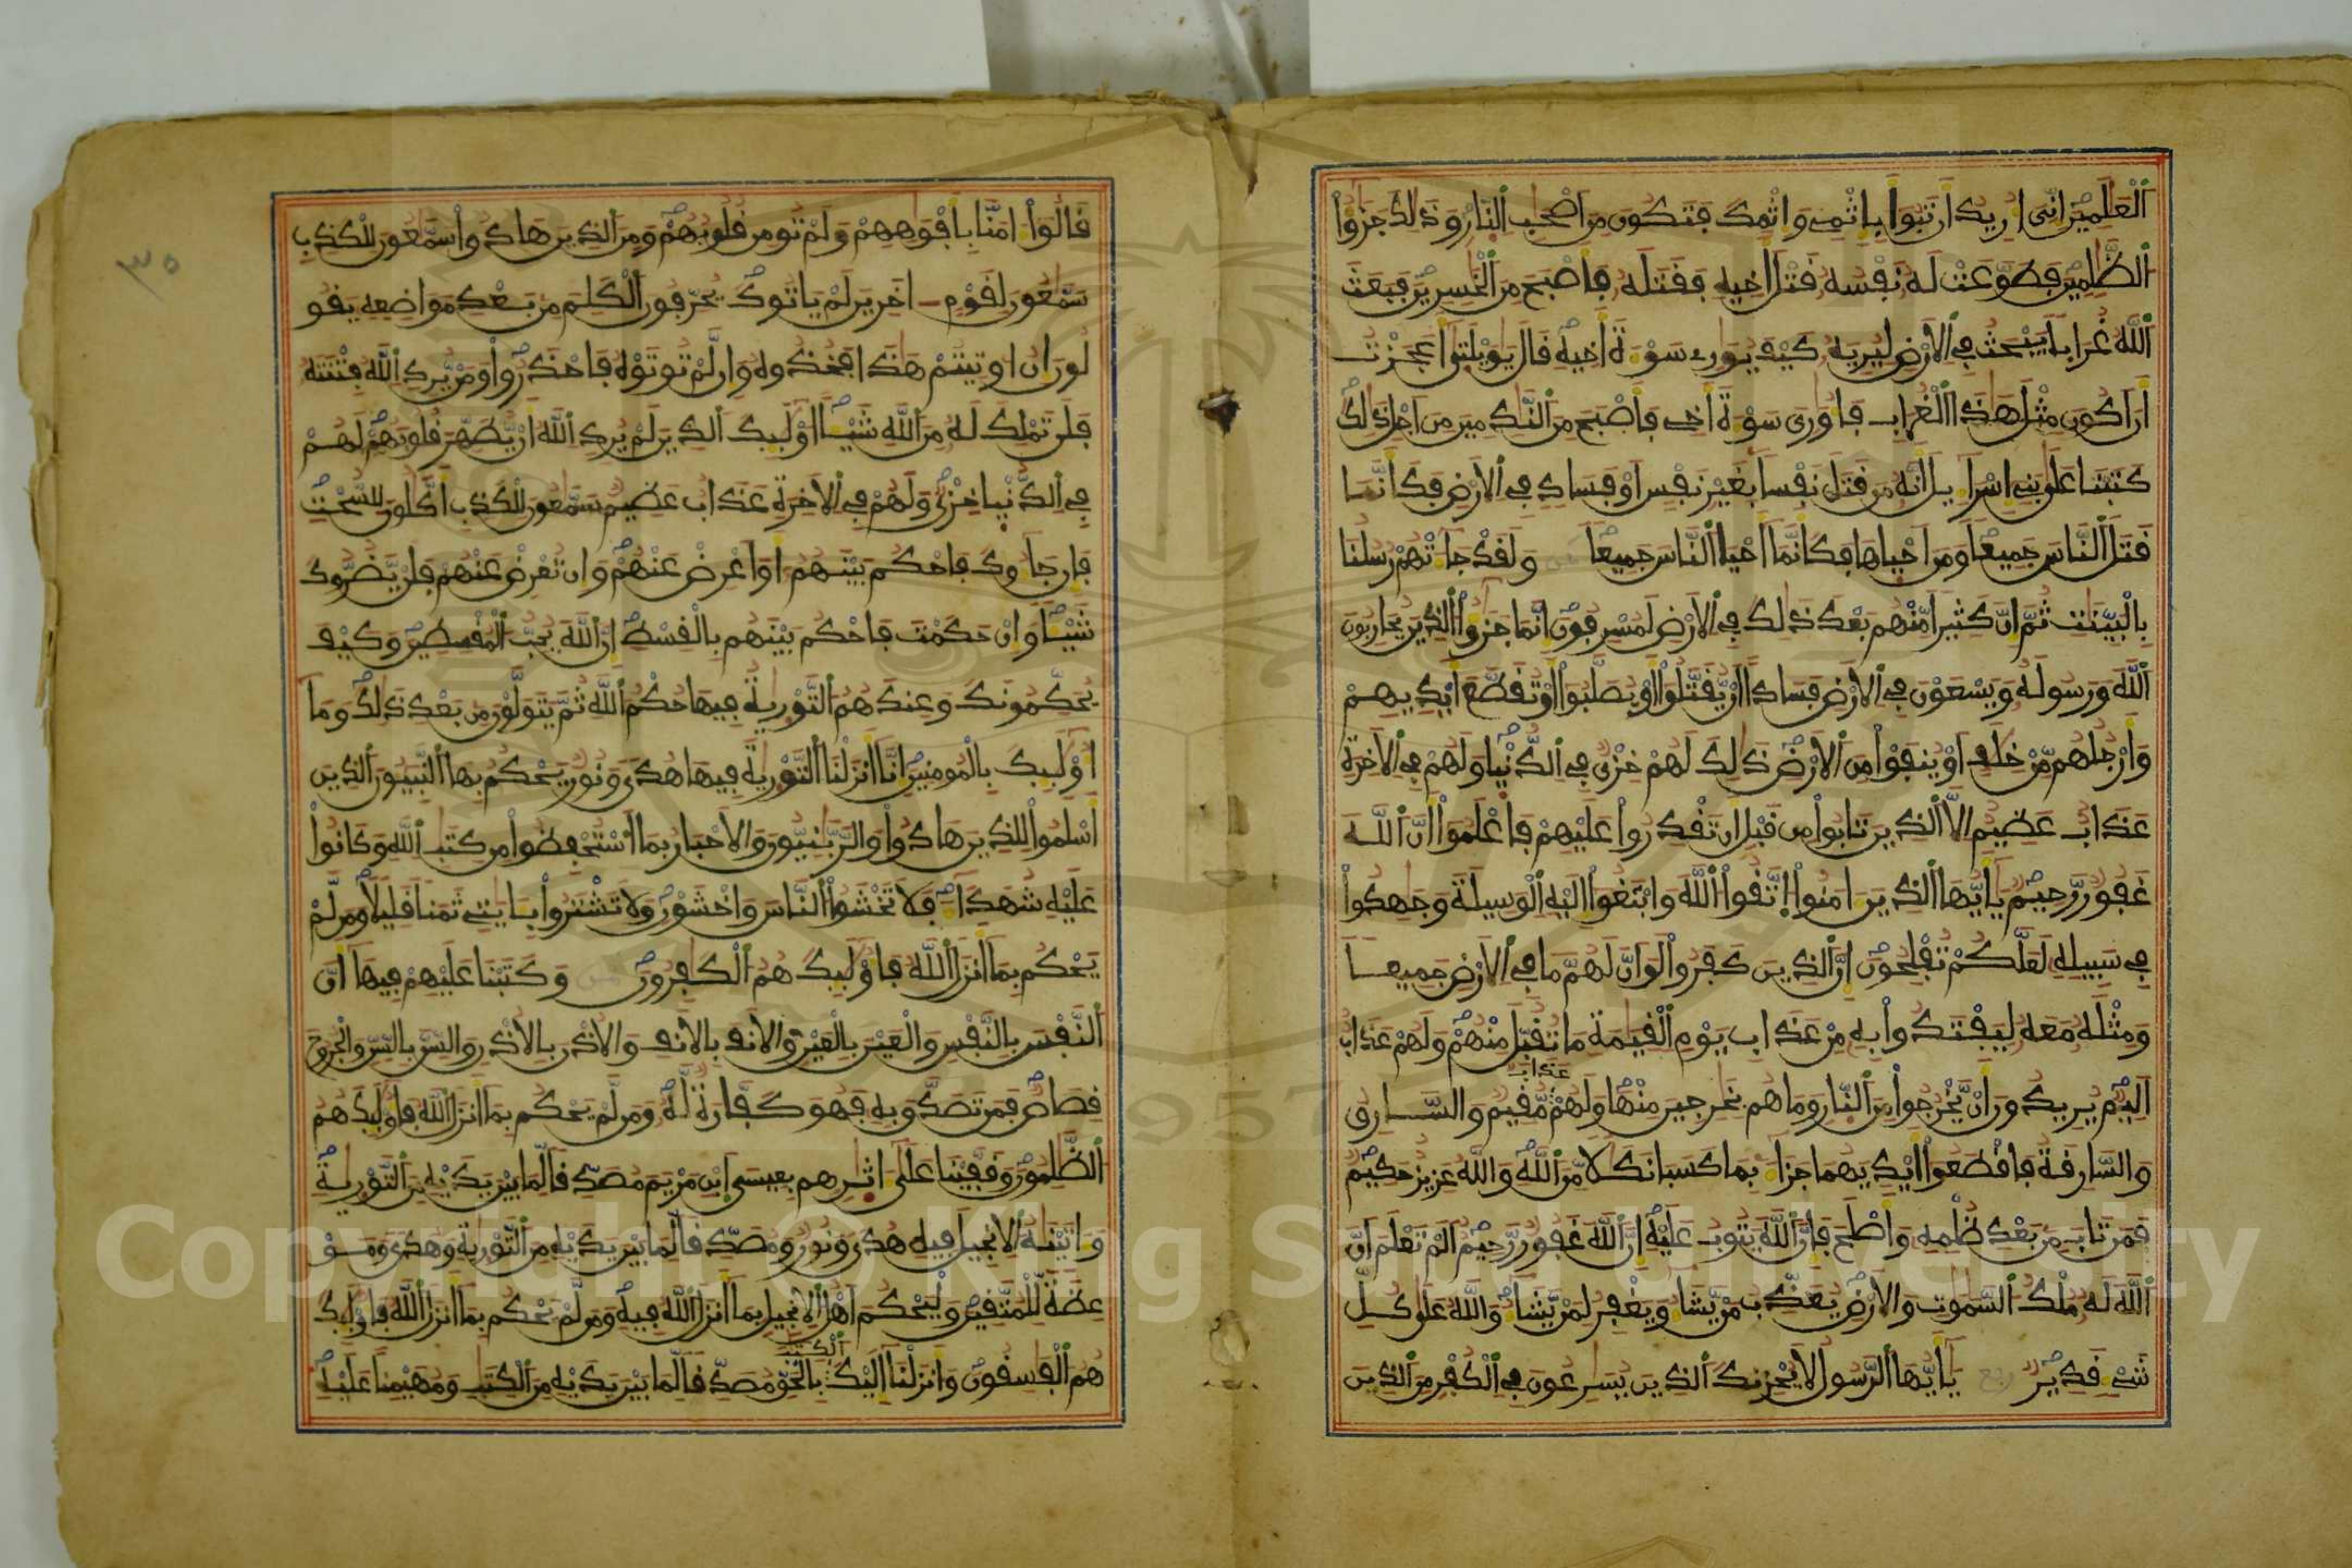 اَلْعَلَمِينَ إِنِّيَ أُرِيدُ أَن تَبُوَأَ بِإِثْمِے وَإِثْمِكَ فَتَكُونَ مِنَ اَصْحَٰبِ اِلنّارِ وَذَٰلِكَ جَزَٰٓؤُاْ
اُلظَّٰلِمِينَ فَطَوَّعَتْ لَهُۥ نَفْسُهُۥ قَتْلَ أَخِيهِ فَقَتَلَهُۥ فَأَصْبَحَ مِنَ اَلْخَٰسِرِينَ فَبَعَثَ
اَللَّهُ غُرَاباً يَبْحَثُ فِے اِلَارْضِ لِيُرِيَهُۥ كَيْفَ يُوَٰرِے سَوْءَةَ أَخِيهِ قَالَ يَٰوَيْلَتَىٰٓ أَعَجَزْتُ
أَنَ اَكُونَ مِثْلَ هَٰذَا اَلْغُرَابِ فَأُوَٰرِيَ سَوْءَةَ أَخِے فَأَصْبَحَ مِنَ اَلنَّٰدِمِينَ مِنَ اَجْلِ ذَٰلِكَ
كَتَبْنَا عَلَىٰ بَنِےٓ إِسْرَآءِيلَ أَنَّهُۥ مَن قَتَلَ نَفْساً بِغَيْرِ نَفْسٍ اَوْ فَسَادٍ فِے اِلَارْضِ فَكَأَنَّمَا
قَتَلَ اَلنَّاسَ جَمِيعاً وَمَنَ اَحْيَاهَا فَكَأَنَّمَآ أَحْيَا اَلنَّاسَ جَمِيعاً وَلَقَدْ جَآءَتْهُمْ رُسُلُنَا
بِالْبَيِّنَٰتِ ثُمَّ إِنَّ كَثِيراً مِّنْهُم بَعْدَ ذَٰلِكَ فِے اِلَارْضِ لَمُسْرِفُونَ إِنَّمَا جَزَٰٓؤُاْ اُلذِينَ يُحَارِبُونَ
اَللَّهَ وَرَسُولَهُۥ وَيَسْعَوْنَ فِے اِلَارْضِ فَسَاداً اَنْ يُّقَتَّلُوٓاْ أَوْ يُصَلَّبُوٓاْ أَوْ تُقَطَّعَ أَيْدِيهِمْ
وَأَرْجُلُهُم مِّنْ خِلَٰفٍ اَوْ يُنفَوْاْ مِنَ اَلَارْضِ ذَٰلِكَ لَهُمْ خِزْيٌ فِے اِلدُّنْيا وَلَهُمْ فِے اِلَاخِرَةِ
عَذَابٌ عَظِيمٌ اِلَّا اَلذِينَ تَابُواْ مِن قَبْلِ أَن تَقْدِرُواْ عَلَيْهِمْ فَاعْلَمُوٓاْ أَنَّ اَللَّهَ
غَفُورٌ رَّحِيمٌ يَٰٓأَيُّهَا اَلذِينَ ءَامَنُواْ اُتَّقُواْ اُللَّهَ وَابْتَغُوٓاْ إِلَيْهِ اِلْوَسِيلَةَ وَجَٰهِدُواْ
فِے سَبِيلِهِۦ لَعَلَّكُمْ تُفْلِحُونَ إِنَّ اَلذِينَ كَفَرُواْ لَوَ اَنَّ لَهُم مَّا فِے اِلَارْضِ جَمِيعاً
وَمِثْلَهُۥ مَعَهُۥ لِيَفْتَدُواْ بِهِۦ مِنْ عَذَابِ يَوْمِ اِلْقِيَٰمَةِ مَا تُقُبِّلَ مِنْهُمْ وَلَهُمْ عَذَابٌ
اَلِيمٌ يُرِيدُونَ أَنْ يَّخْرُجُواْ مِنَ اَلنّارِ وَمَا هُم بِخَٰرِجِينَ مِنْهَا وَلَهُمْ عَذَابٌ مُّقِيمٌ وَالسَّارِقُ
وَالسَّارِقَةُ فَاقْطَعُوٓاْ أَيْدِيَهُمَا جَزَآءَۢ بِمَا كَسَبَا نَكَٰلًا مِّنَ اَللَّهِ وَاللَّهُ عَزِيزٌ حَكِيمٌ
فَمَن تَابَ مِنۢ بَعْدِ ظُلْمِهِۦ وَأَصْلَحَ فَإِنَّ اَللَّهَ يَتُوبُ عَلَيْهِ إِنَّ اَللَّهَ غَفُورٌ رَّحِيمٌ اَلَمْ تَعْلَمَ اَنَّ
اَللَّهَ لَهُۥ مُلْكُ اُلسَّمَٰوَٰتِ وَالَارْضِ يُعَذِّبُ مَنْ يَّشَآءُ وَيَغْفِرُ لِمَنْ يَّشَآءُ وَاللَّهُ عَلَىٰ كُلِّ
شَےْءٍ قَدِيرٌ ربع يَٰٓأَيُّهَا اَلرَّسُولُ لَا يُحْزِنكَ اَلذِينَ يُسَٰرِعُونَ فِے اِلْكُفْرِ مِنَ اَلذِينَ
٣٥
قَالُوٓاْ ءَامَنَّا بِأَفْوَٰهِهِمْ وَلَمْ تُومِن قُلُوبُهُمْ وَمِنَ اَلذِينَ هَادُواْ سَمَّٰعُونَ لِلْكَذِبِ
سَمَّٰعُونَ لِقَوْمٍ ءَاخَرِينَ لَمْ يَاتُوكَ يُحَرِّفُونَ اَلْكَلِمَ مِنۢ بَعْدِ مَوَاضِعِهِۦ يَقُو
لُونَ إِنُ اوتِيتُمْ هَٰذَا فَخُذُوهُ وَإِن لَّمْ تُوتَوْهُ فَاحْذَرُواْ وَمَنْ يُّرِدِ اِللَّهُ فِتْنَتَهُۥ
فَلَن تَمْلِكَ لَهُۥ مِنَ اَللَّهِ شَيْـاً اُوْلَٰٓئِكَ اَلذِينَ لَمْ يُرِدِ اِللَّهُ أَنْ يُّطَهِّرَ قُلُوبَهُمْ لَهُمْ
فِے اِلدُّنْيا خِزْيٌ وَلَهُمْ فِے اِلَاخِرَةِ عَذَابٌ عَظِيمٌ سَمَّٰعُونَ لِلْكَذِبِ أَكَّٰلُونَ لِلسُّحْتِ
فَإِن جَآءُوكَ فَاحْكُم بَيْنَهُمُۥٓ أَوَ اَعْرِضْ عَنْهُمْ وَإِن تُعْرِضْ عَنْهُمْ فَلَنْ يَّضُرُّوكَ
شَيْـاً وَإِنْ حَكَمْتَ فَاحْكُم بَيْنَهُم بِالْقِسْطِ إِنَّ اَللَّهَ يُحِبُّ اُلْمُقْسِطِينَ وَكَيْفَ
يُحَكِّمُونَكَ وَعِندَهُمُ اُلتَّوْرَيٰةُ فِيهَا حُكْمُ اُللَّهِ ثُمَّ يَتَوَلَّوْنَ مِنۢ بَعْدِ ذَٰلِكَ وَمَآ
أُوْلَٰٓئِكَ بِالْمُومِنِينَ إِنَّآ أَنزَلْنَا اَلتَّوْرَيٰةَ فِيهَا هُديً وَنُورٌ يَحْكُمُ بِهَا اَلنَّبِيٓـُٔونَ اَلذِينَ
أَسْلَمُواْ لِلذِينَ هَادُواْ وَالرَّبَّٰنِيُّونَ وَالَاحْبَارُ بِمَا اَسْتُحْفِظُواْ مِن كِتَٰبِ اِللَّهِ وَكَانُواْ
عَلَيْهِ شُهَدَآءَ فَلَا تَخْشَوُاْ اُلنَّاسَ وَاخْشَوْنِ وَلَا تَشْتَرُواْ بِـَٔايَٰتِے ثَمَناً قَلِيلًا وَمَن لَّمْ
يَحْكُم بِمَآ أَنزَلَ اَللَّهُ فَأُوْلَٰٓئِكَ هُمُ اُلْكَٰفِرُونَ ثمن وَكَتَبْنَا عَلَيْهِمْ فِيهَآ أَنَّ
اَلنَّفْسَ بِالنَّفْسِ وَالْعَيْنَ بِالْعَيْنِ وَالَانفَ بِالَانفِ وَالُاذْنَ بِالُاذْنِ وَالسِّنَّ بِالسِّنِّ وَالْجُرُوحَ
قِصَاصٌ فَمَن تَصَدَّقَ بِهِۦ فَهُوَ كَفَّارَةٌ لَّهُۥ وَمَن لَّمْ يَحْكُم بِمَآ أَنزَلَ اَللَّهُ فَأُوْلَٰٓئِكَ هُمُ
اُلظَّٰلِمُونَ وَقَفَّيْنَا عَلَىٰٓ ءَاثَٰرِهِم بِعِيسَى اَبْنِ مَرْيَمَ مُصَدِّقاً لِّمَا بَيْنَ يَدَيْهِ مِنَ اَلتَّوْرَيٰةِ
وَءَاتَيْنَٰهُ اُلِانجِيلَ فِيهِ هُديً وَنُورٌ وَمُصَدِّقاً لِّمَا بَيْنَ يَدَيْهِ مِنَ اَلتَّوْرَيٰةِ وَهُديً وَمَوْ
عِظَةً لِّلْمُتَّقِينَ وَلْيَحْكُمَ اَهْلُ اُلِانجِيلِ بِمَآ أَنزَلَ اَللَّهُ فِيهِ وَمَن لَّمْ يَحْكُم بِمَآ أَنزَلَ اَللَّهُ فَأُوْلَٰٓئِكَ
هُمُ اُلْفَٰسِقُونَ وَأَنزَلْنَآ إِلَيْكَ اَلْكِتَٰبَ بِالْحَقِّ مُصَدِّقاً لِّمَا بَيْنَ يَدَيْهِ مِنَ اَلْكِتَٰبِ وَمُهَيْمِناً عَلَيْهِ
Copyright © King Saud University
1957